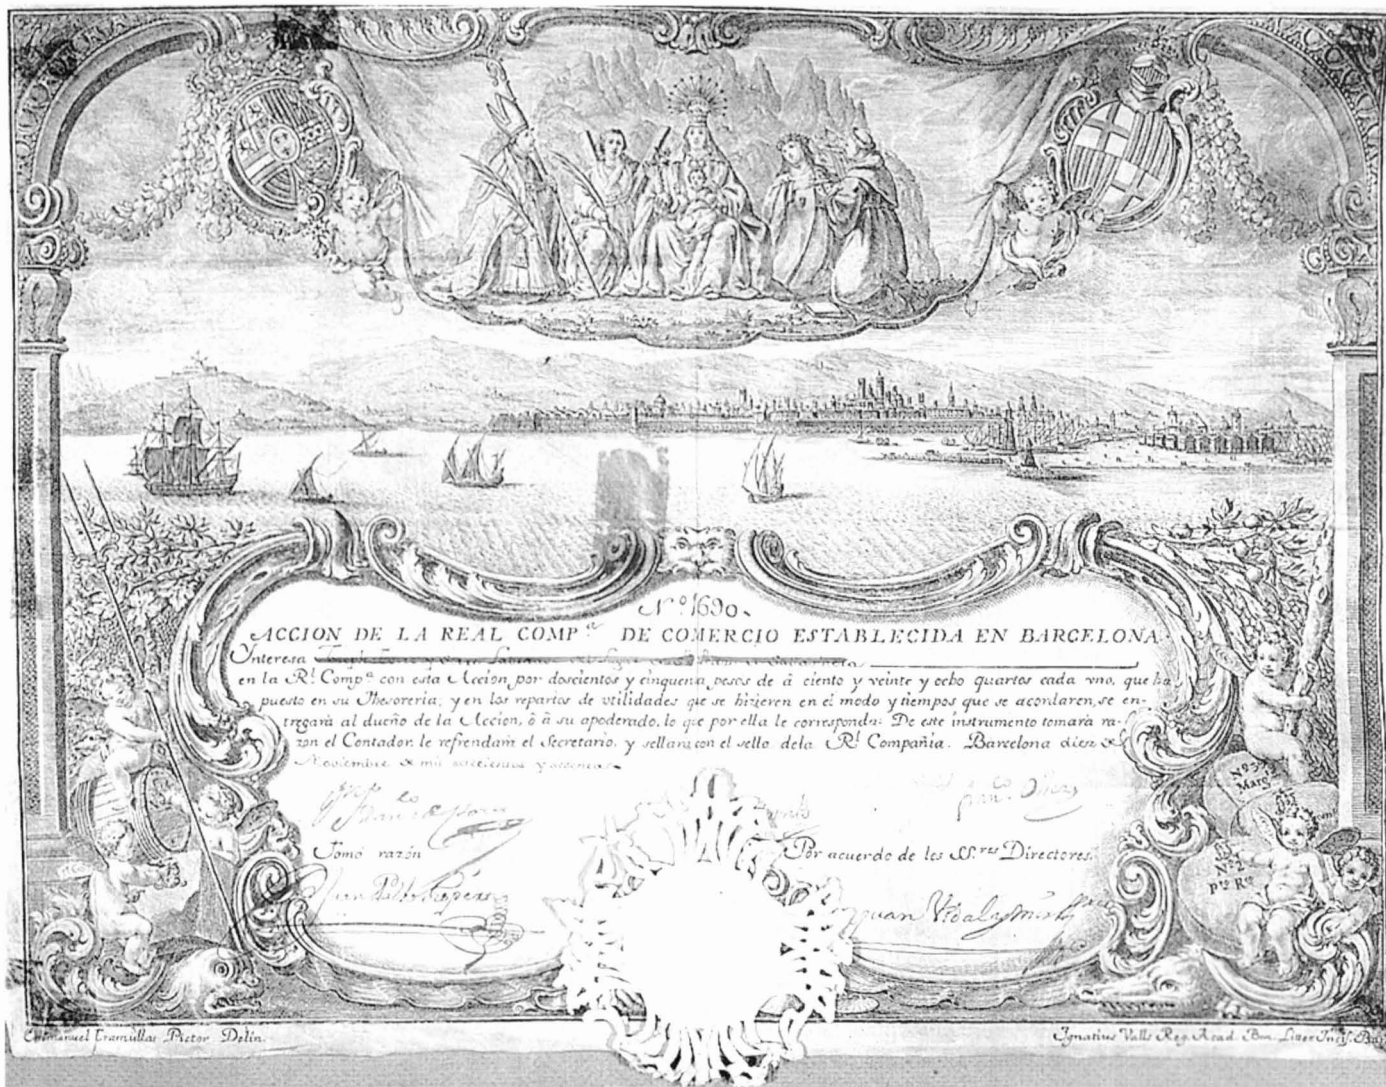 Nº 1690.
ACCION DE LA REAL COMP.ª DE COMERCIO ESTABLECIDA EN BARCELONA.
Interesa
en la R.l Comp.ª con esta Accion, por doscientos y cinquenta pesos de â ciento y veinte y ocho quartos cada vno, que ha
puesto en su Thesoreria; y en los repartos de vtilidades que se hizieren en el modo y tiempos que se acordaren, se en-
tregarà al dueño de la Accion, ò â su apoderado, lo que por ella le corresponda: De este instrumento tomarà ra-
zon el Contador, le refrendarà el Secretario, y sellarà con el sello de la R.l Compañia. Barcelona diez de
Noviembre de mil setecientos y
Tomó razón
Por acuerdo de los SS.res Directores.
Juan Pablo
Juan Vidal y Mir
Nº 3
Marg.ta
Nº 2
pto Rco
Emmanuel Tramullas Pictor Delin.
Ignatius Valls Reg. Acad. Bon. Litter. Incis. Bar